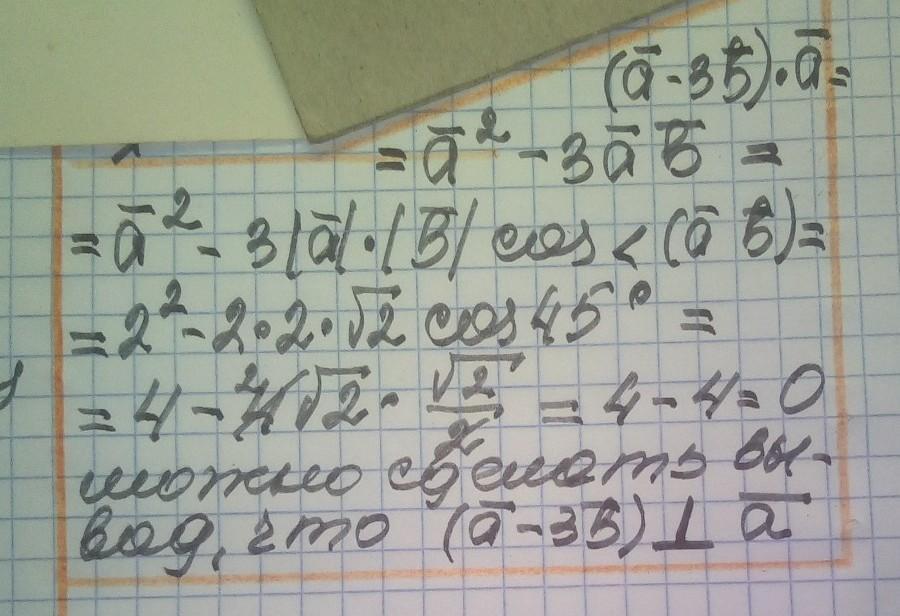 (a̅-3b̅)·a̅=
= a̅² - 3a̅ b̅ =
= a̅² - 3|a̅|·|b̅| cos < (a̅ b̅) =
= 2² - 2·2·√2 cos 45° =
= 4 - 4√2 · √2/2 = 4 - 4 = 0
можно сделать вы-
вод, что (a̅ - 3b̅) ⊥ a̅